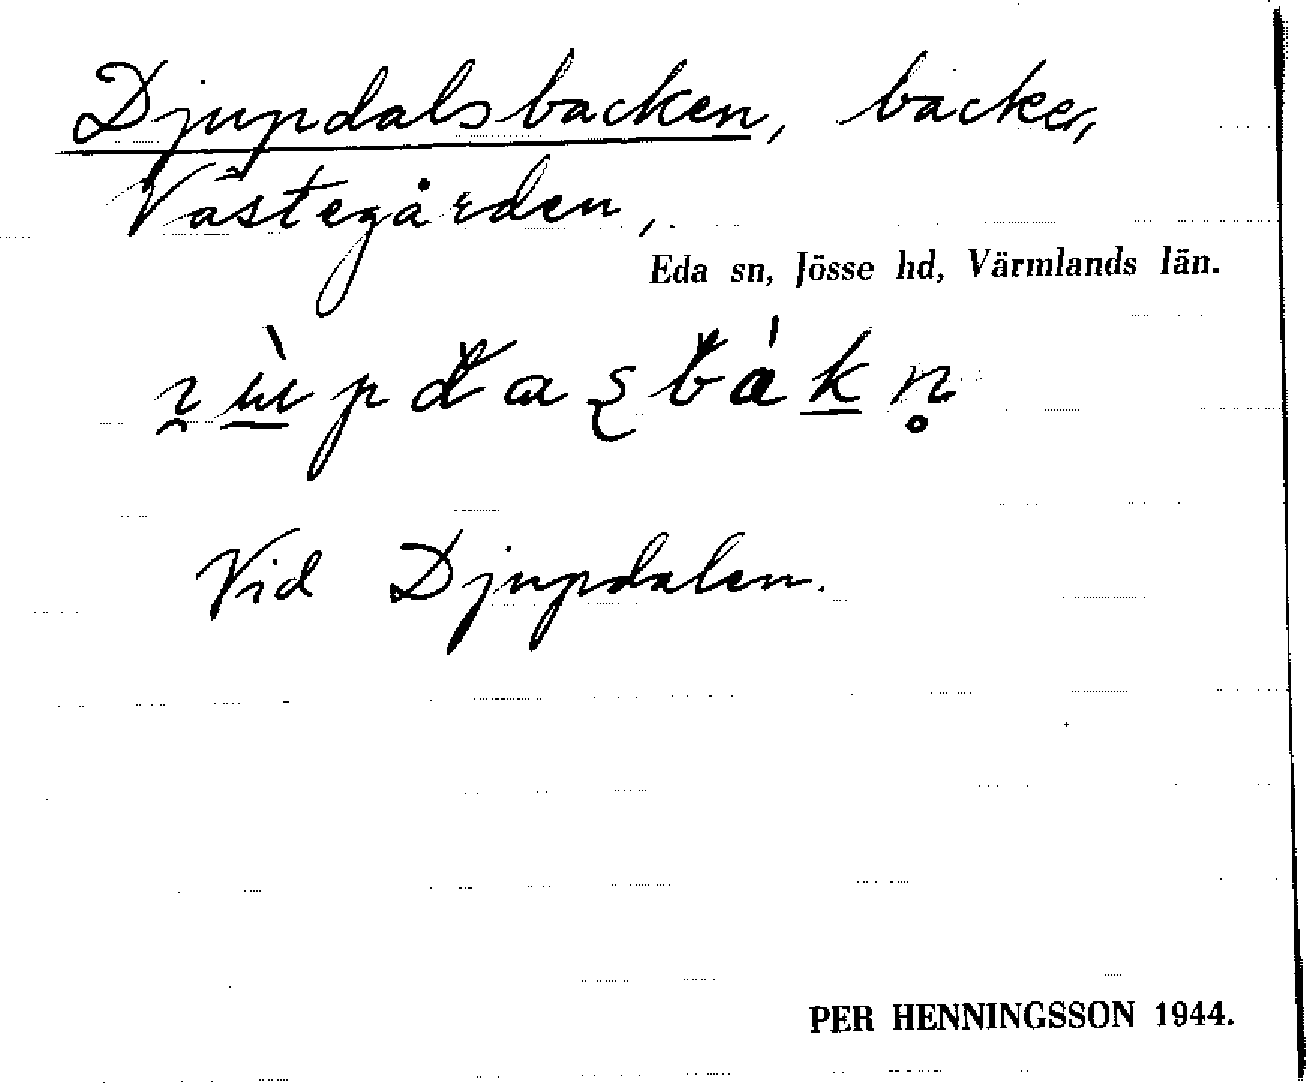 Djupdalsbacken, backe,
Västegården,
Eda sn, Jösse hd, Värmlands län.
Vid Djupdalen.
PER HENNINGSSON 1944.